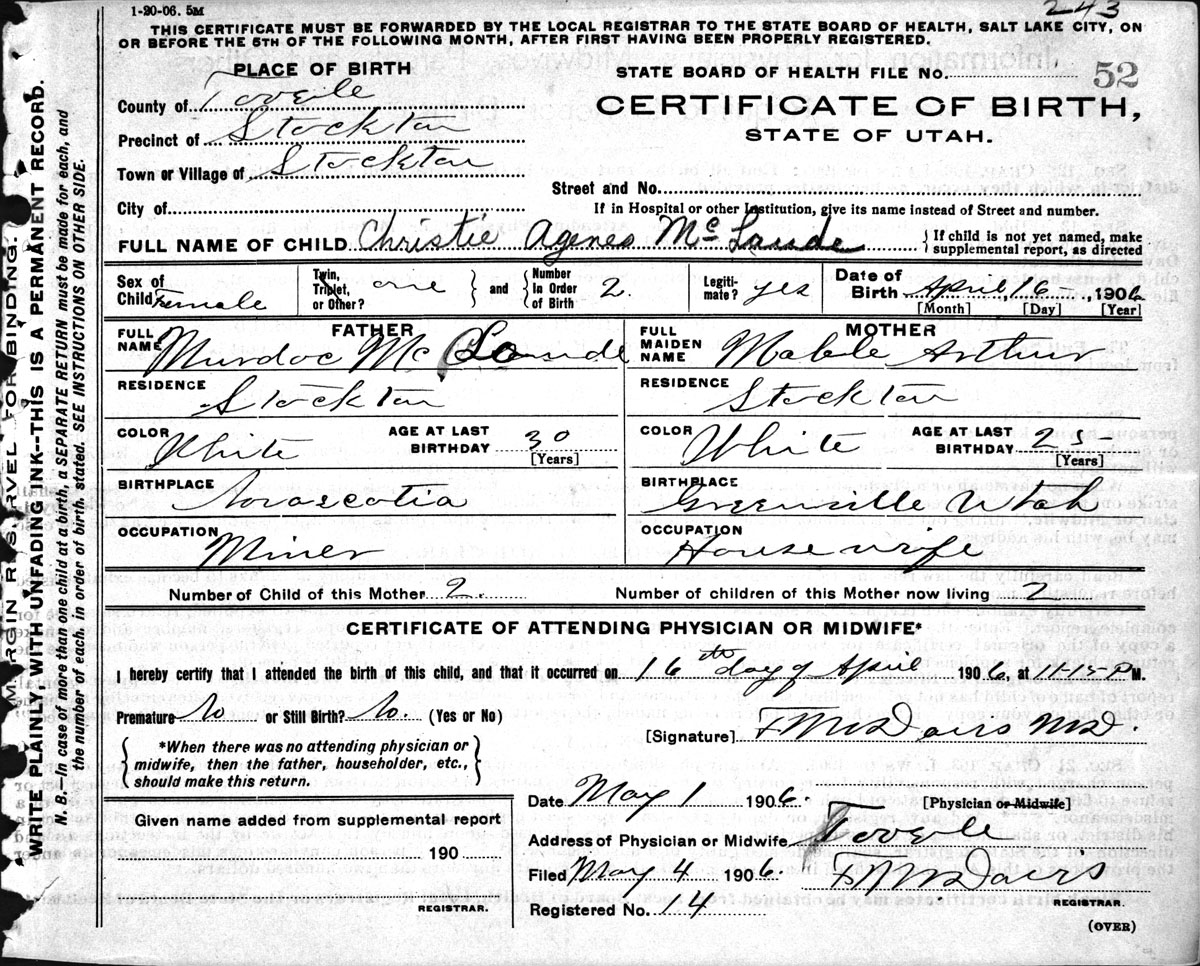 1-20-06. 5M
243
THIS CERTIFICATE MUST BE FORWARDED BY THE LOCAL REGISTRAR TO THE STATE BOARD OF HEALTH, SALT LAKE CITY, ON
OR BEFORE THE 5TH OF THE FOLLOWING MONTH, AFTER FIRST HAVING BEEN PROPERLY REGISTERED.
PLACE OF BIRTH
STATE BOARD OF HEALTH FILE NO. 52
County of Tooele
CERTIFICATE OF BIRTH,
Precinct of Stockton
STATE OF UTAH.
Town or Village of Stockton
Street and No.
City of
If in Hospital or other Institution, give its name instead of Street and number.
FULL NAME OF CHILD Christie Agenes Mc Laude { If child is not yet named, make supplemental report, as directed
Sex of Child Female
Twin, Triplet, or Other? one } and { Number In Order of Birth 2.
Legiti-mate? yes
Date of Birth April, 16, 1906
[Month] [Day] [Year]
FATHER
FULL NAME Murdoc Mc
MOTHER
FULL MAIDEN NAME Mable Arthur
RESIDENCE Stockton
RESIDENCE Stockton
COLOR White AGE AT LAST BIRTHDAY 30 [Years]
COLOR White AGE AT LAST BIRTHDAY 25 [Years]
BIRTHPLACE Novascotia
BIRTHPLACE Greenville Utah
OCCUPATION Miner
OCCUPATION Housewife
Number of Child of this Mother 2. Number of children of this Mother now living 2
CERTIFICATE OF ATTENDING PHYSICIAN OR MIDWIFE*
I hereby certify that I attended the birth of this child, and that it occurred on 16th day of April 1906, at P M.
Premature No or Still Birth? No. (Yes or No)
[Signature] F M Davis MD.
{ *When there was no attending physician or midwife, then the father, householder, etc., should make this return. }
Date May 1 1906. [Physician or Midwife]
Given name added from supplemental report
Address of Physician or Midwife Tooele
190
Filed May 4 1906. F M Davis
REGISTRAR.
REGISTRAR.
Registered No. 14
(OVER)
MARGIN RESERVED FOR BINDING.
WRITE PLAINLY WITH UNFADING INK--THIS IS A PERMANENT RECORD.
N. B.—In case of more than one child at a birth, a SEPARATE RETURN must be made for each, and
the number of each, in order of birth, stated. SEE INSTRUCTIONS ON OTHER SIDE.